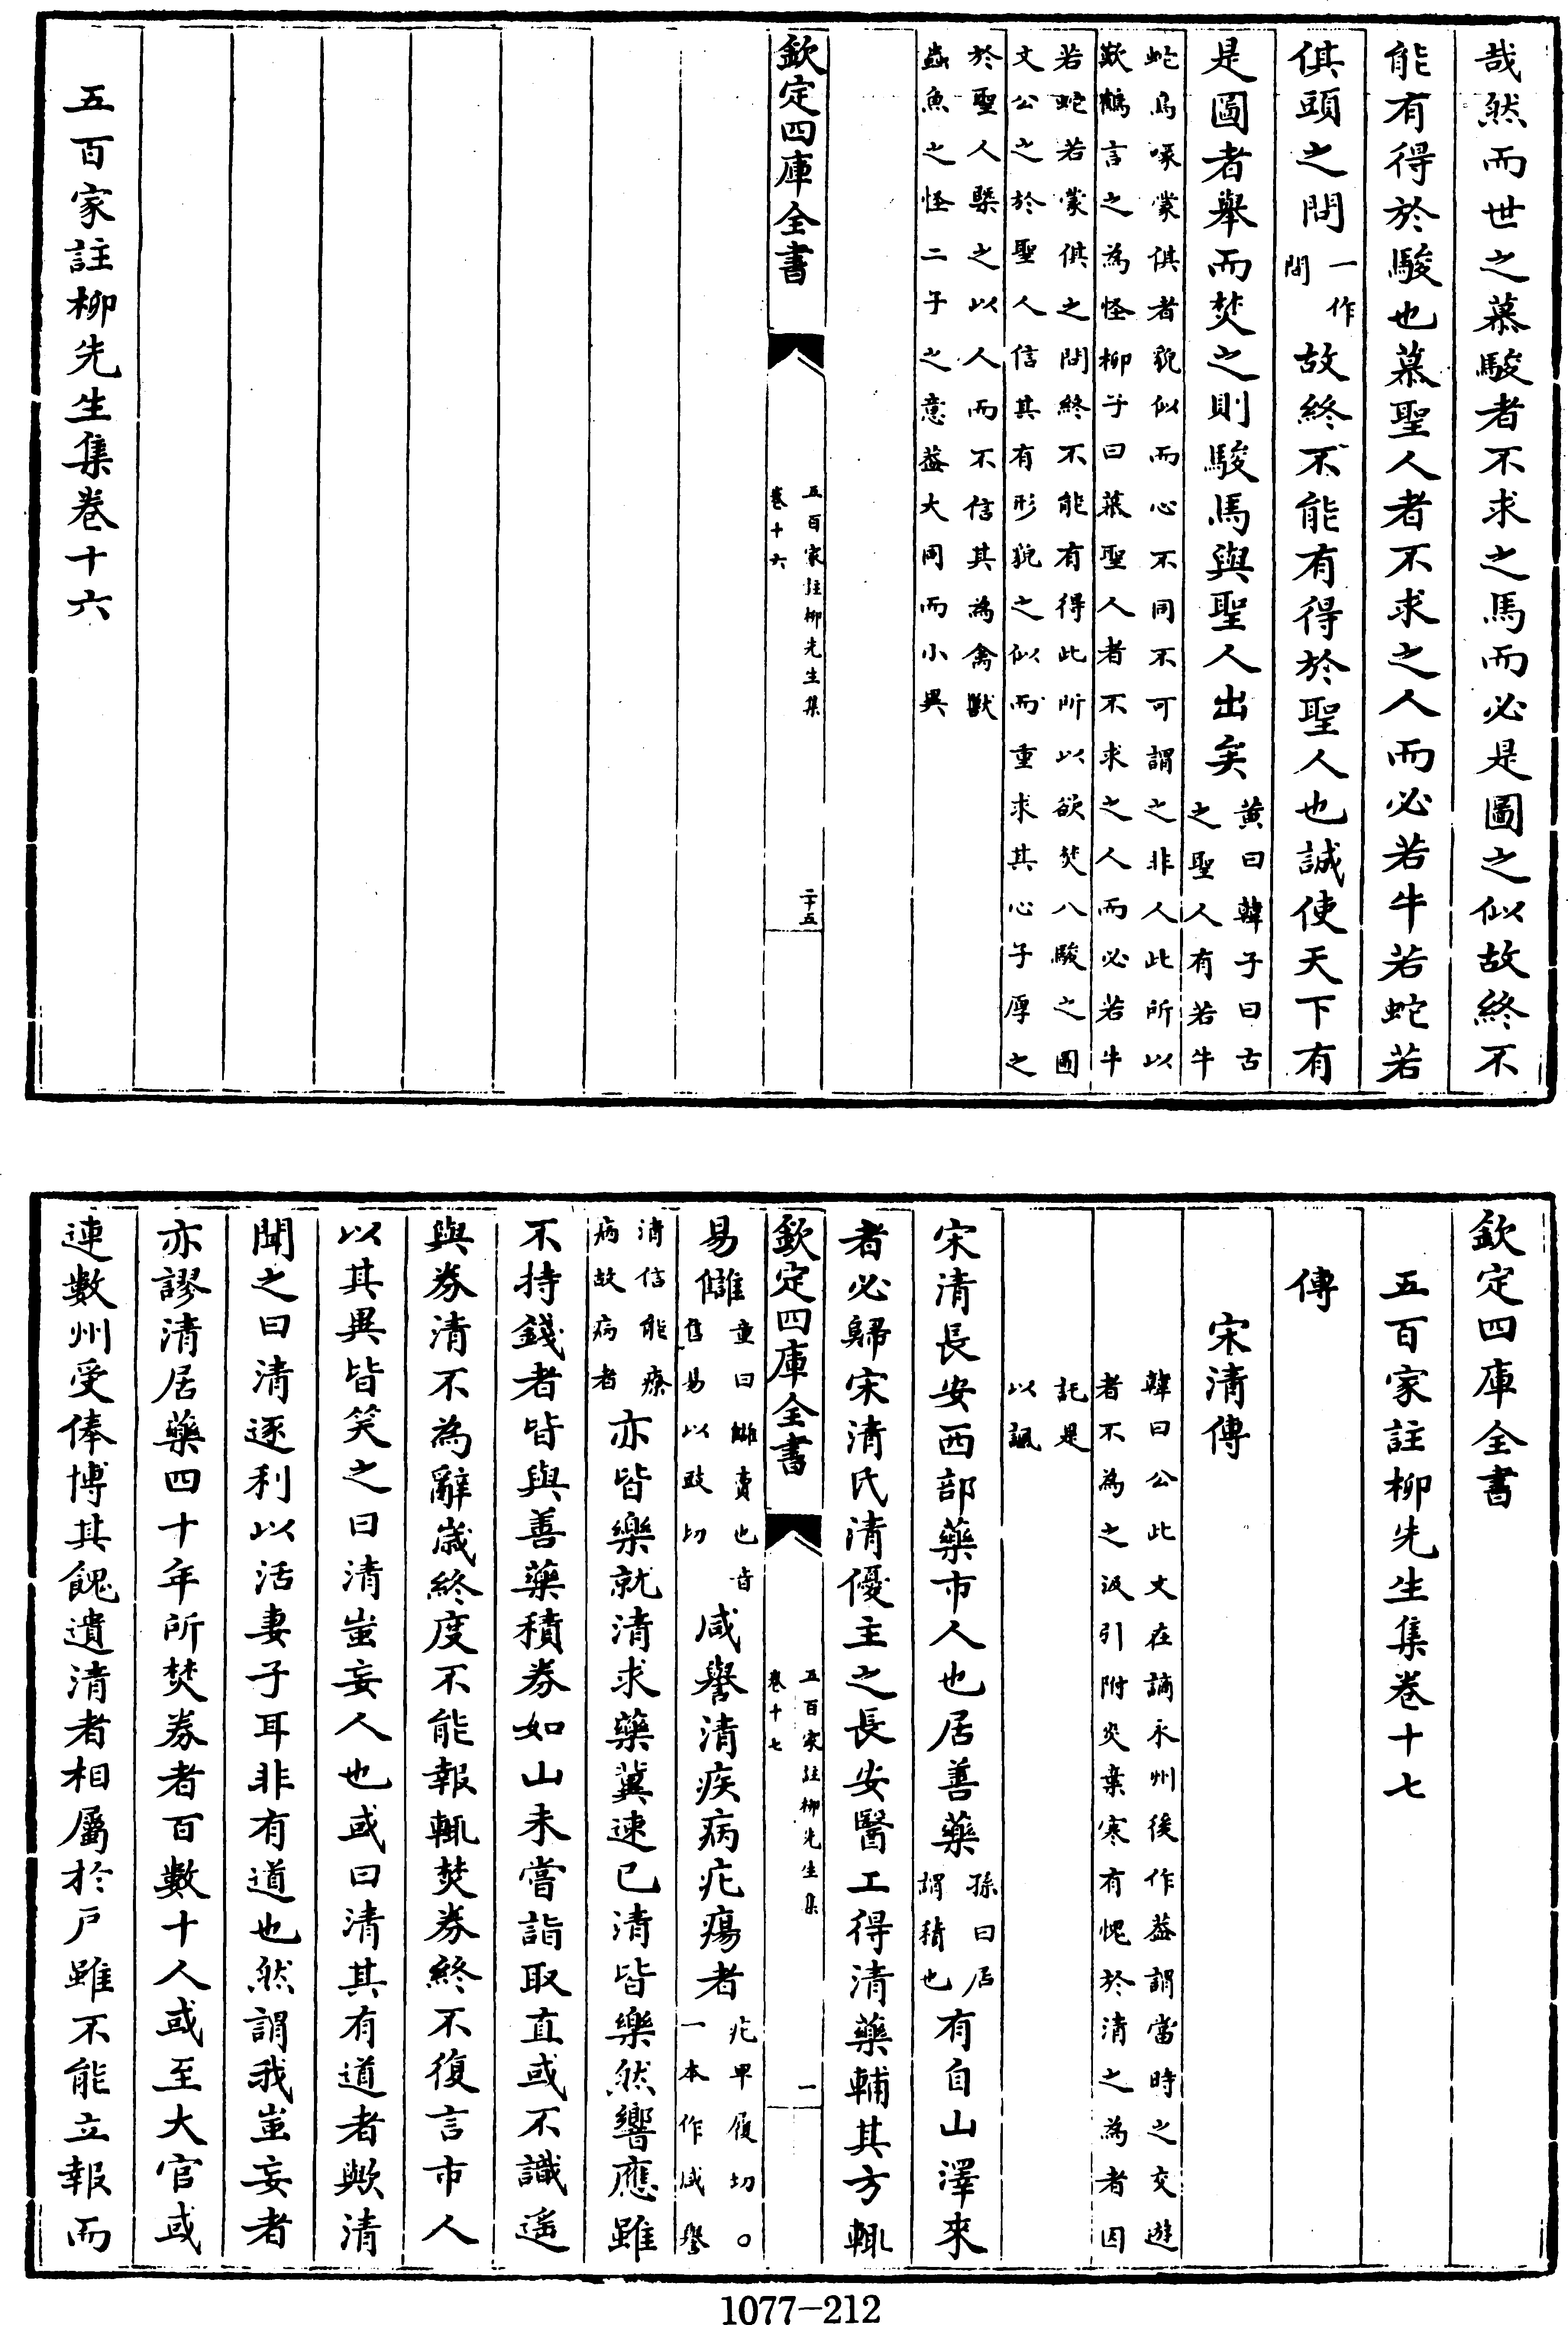 哉然而世之慕駿者不求之馬而必是圖之似故終不
能有得於駿也慕聖人者不求之人而必若牛若蛇若
倛頭之問一作間故終不能有得於聖人也誠使天下有
是圖者舉而焚之則駿馬與聖人出矣黄曰韓子曰古之聖人有若牛
蛇鳥喙蒙倛者貌似而心不同不可謂之非人此所以
歎鶴言之為怪柳子曰慕聖人者不求之人而必若牛
若蛇若蒙倛之問終不能有得此所以欲焚八駿之圖
文公之於聖人信其有形貌之似而重求其心子厚之
於聖人槩之以人而不信其為禽獸
蟲魚之怪二子之意葢大同而小異
欽定四庫全書
五百家註柳先生集
卷十六
二十五
五百家註柳先生集卷十六
欽定四庫全書
五百家註柳先生集卷十七
傳
宋清傳
韓曰公此文在謫永州後作葢謂當時之交遊
者不為之汲引附炎棄寒有愧於清之為者因
託是
以諷
宋清長安西部藥市人也居善藥孫曰居謂積也有自山澤來
者必歸宋清氏清優主之長安醫工得清藥輔其方輒
欽定四庫全書
五百家註柳先生集
卷十七
一
易讎童曰讎賣也音售易以豉切咸譽清疾病疕瘍者疕卑履切○一本作咸譽
清信能療病故病者亦皆樂就清求藥冀速已清皆樂然響應雖
不持錢者皆與善藥積券如山未嘗詣取直或不識遥
與券清不為辭歲終度不能報輒焚券終不復言市人
以其異皆笑之曰清蚩妄人也或曰清其有道者歟清
聞之曰清逐利以活妻子耳非有道也然謂我蚩妄者
亦謬清居藥四十年所焚券者百數十人或至大官或
連數州受俸博其餽遺清者相屬於戶雖不能立報而
1077-212